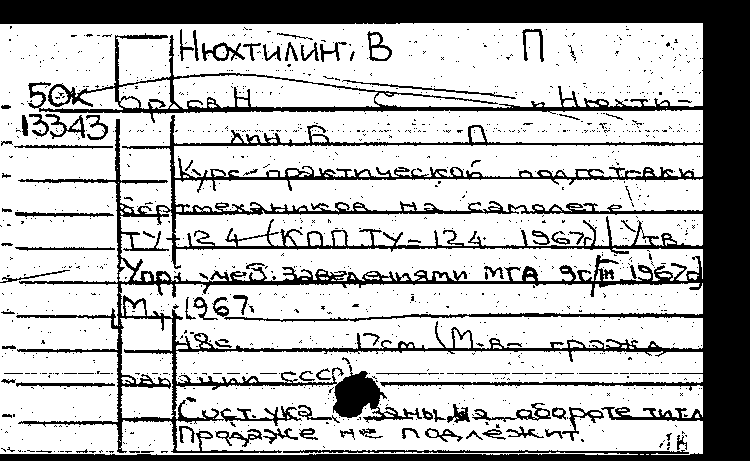 Нюхтилин, В П
50к Орлов Н С и Нюхти-
13343 лин, В П
Курс практической подготовки
бортмехаников на самолете
ТУ-124 (КПП ТУ-124 1967г) [Утв
Упр. учеб. заведениями МГА 9г/III 1967г]
М., 1967.
48с. 17см. (М-во гражд
авиации СССР)
Сост. указаны на обороте титл
Продаже не подлежит.